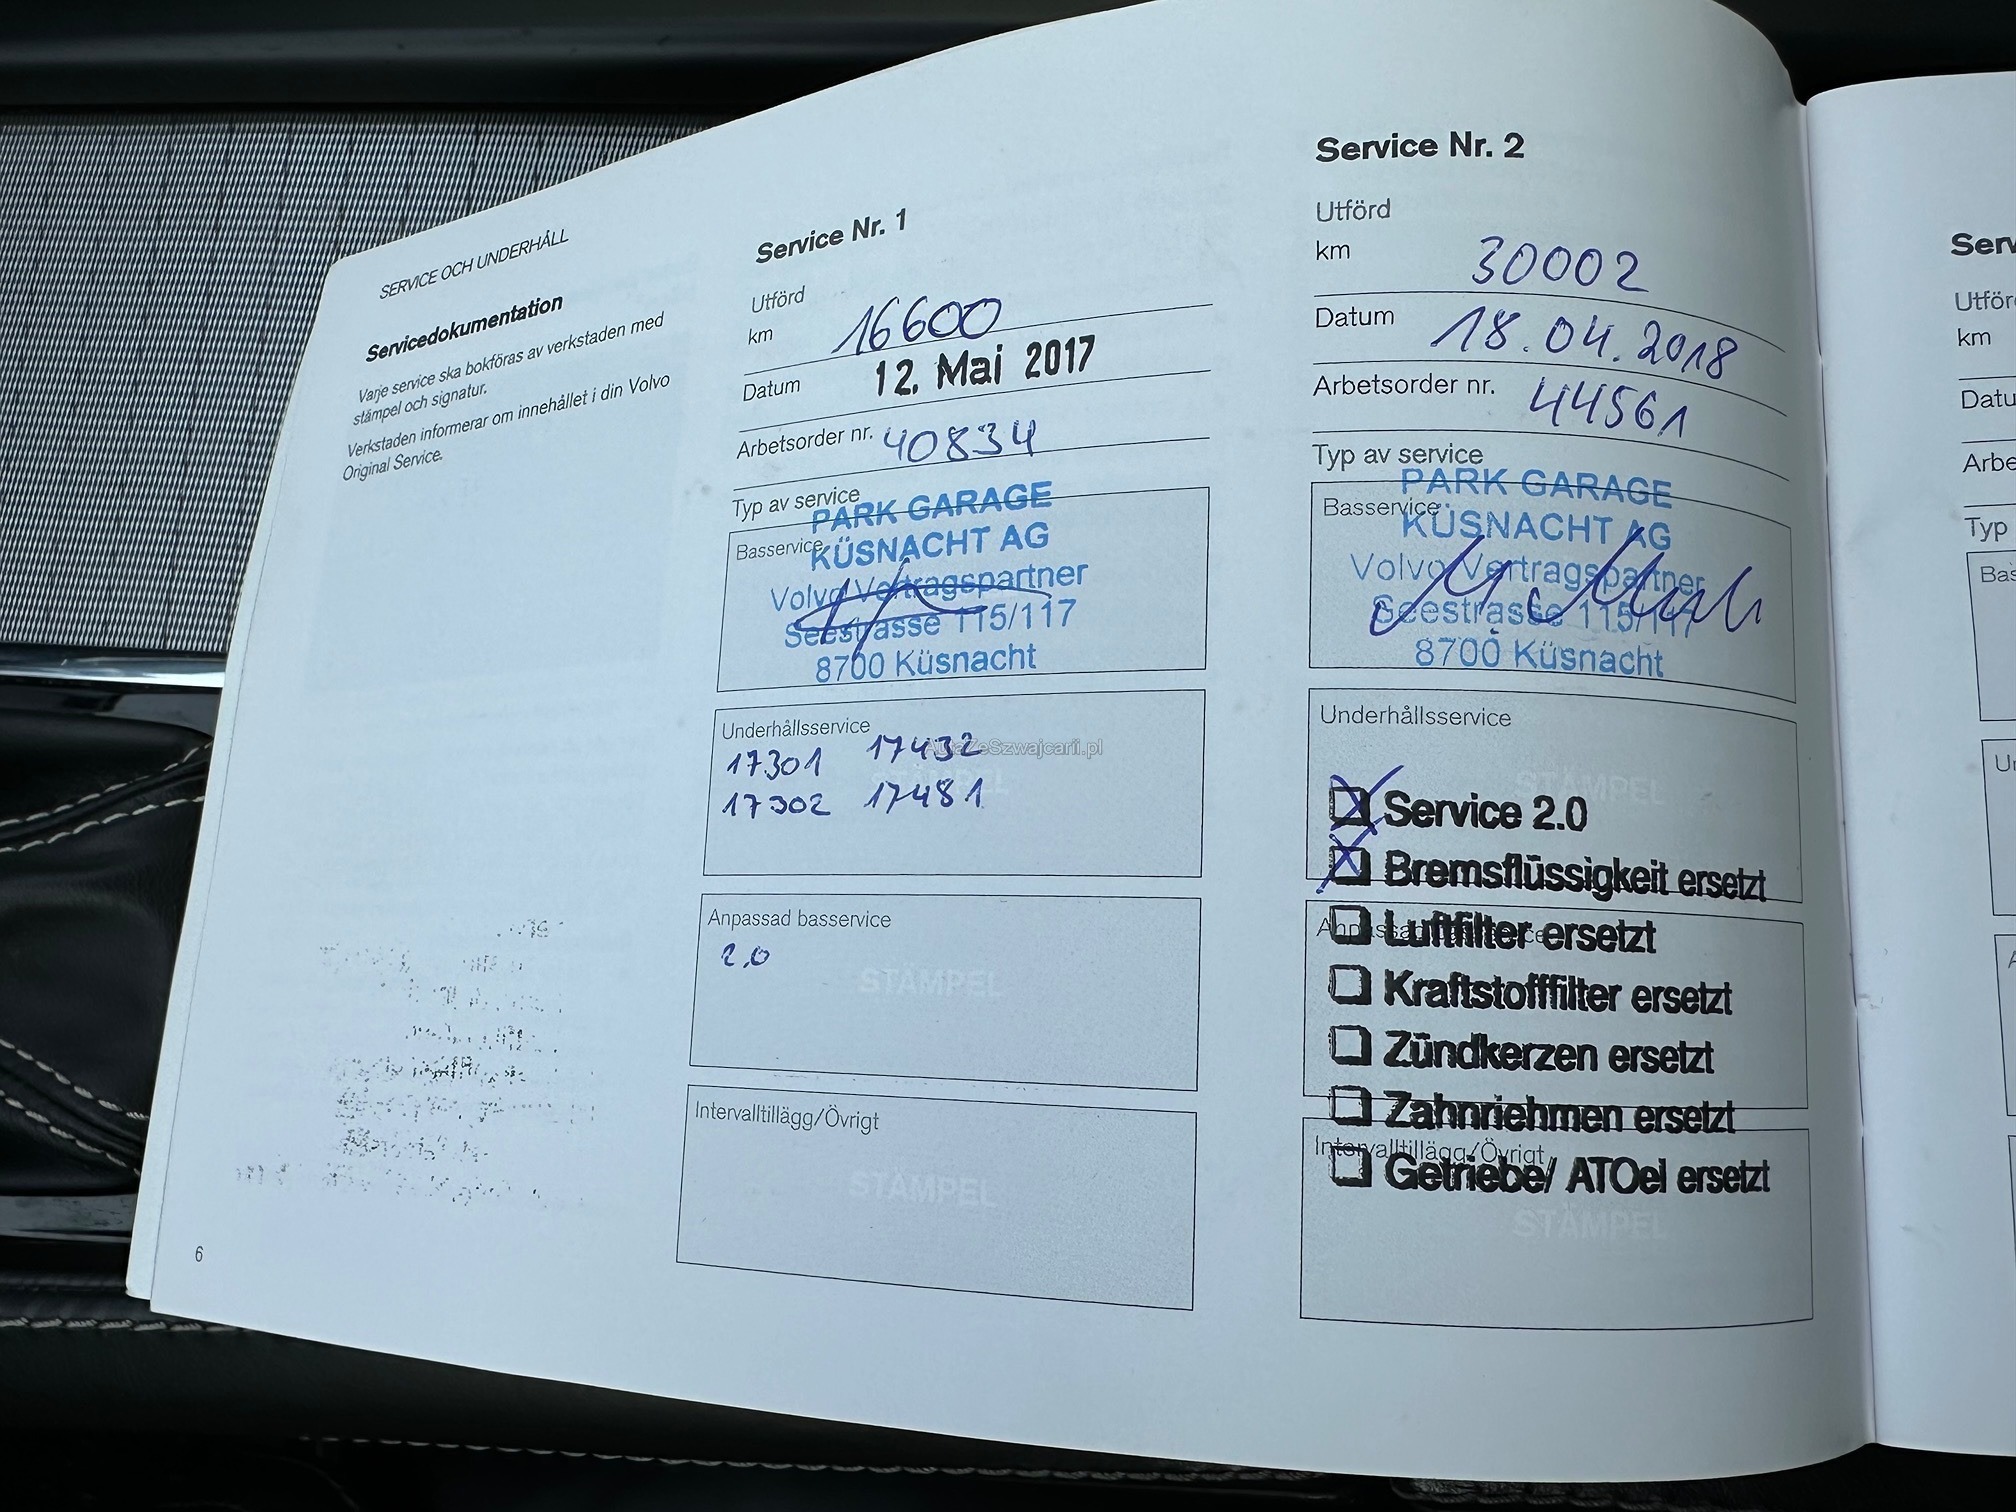 SERVICE OCH UNDERHÅLL
Servicedokumentation
Varje service ska bokföras av verkstaden med
stämpel och signatur.
Verkstaden informerar om innehållet i din Volvo
Original Service.
6
Service Nr. 1
Utförd
km 16600
Datum 12. Mai 2017
Arbetsorder nr. 40834
Typ av service
PARK GARAGE
Basservice KÜSNACHT AG
Volvo Vertragspartner
Seestrasse 115/117
8700 Küsnacht
Underhållsservice
17301 17432
AutaZeSzwajcarii.pl
17302 17481
Anpassad basservice
2.0
STÄMPEL
Intervalltillägg/Övrigt
STÄMPEL
Service Nr. 2
Utförd
km 30002
Datum 18.04.2018
Arbetsorder nr. 44561
Typ av service
PARK GARAGE
Basservice KÜSNACHT AG
Volvo Vertragspartner
Seestrasse 115/117
8700 Küsnacht
Underhållsservice
STÄMPEL
Service 2.0
Bremsflüssigkeit ersetzt
Anpassad basservice
Luftfilter ersetzt
Kraftstofffilter ersetzt
Zündkerzen ersetzt
Zahnriehmen ersetzt
Intervalltillägg/Övrigt
Getriebe/ ATOel ersetzt
STÄMPEL
Utför
km
Typ